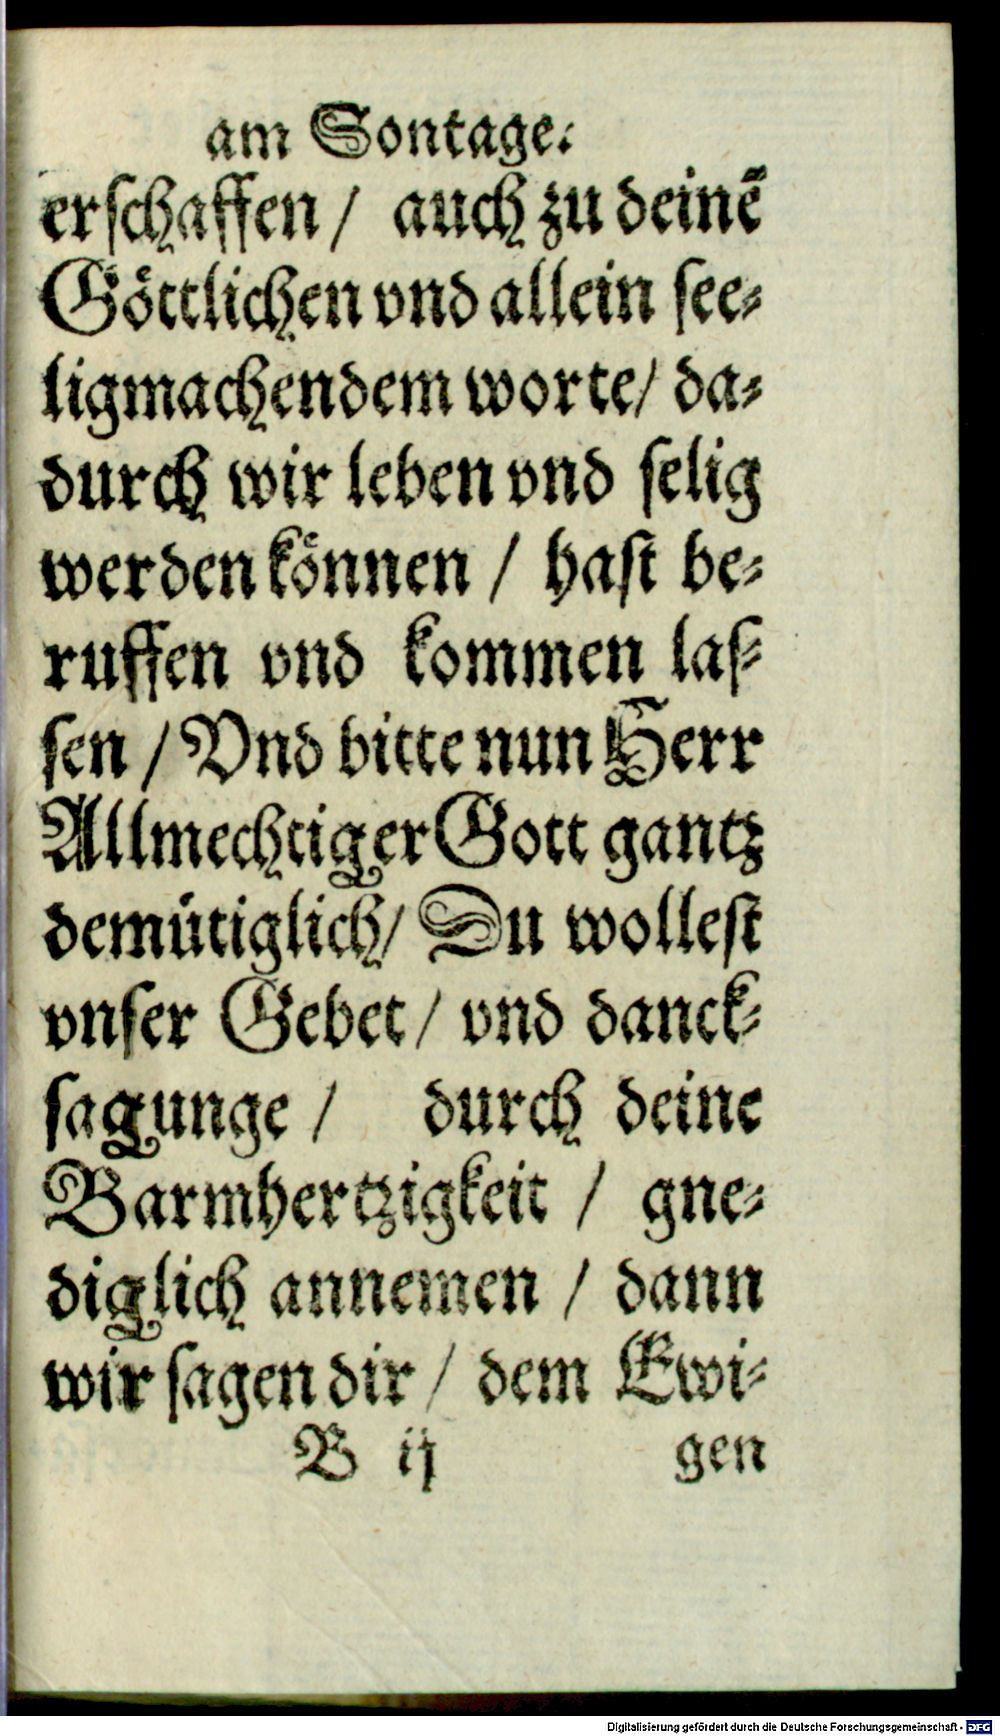 am Sontage.
erſchaffen / auch zu deinē
Göttlichen vnd allein ſee⸗
ligmachendem worte / da⸗
durch wir leben vnd ſelig
werden können / haſt be⸗
ruffen vnd kommen laſ⸗
ſen / Vnd bitte nun Herr
Allmechtiger Gott gantz
demütiglich / Du wolleſt
vnſer Gebet / vnd danck⸗
ſagunge / durch deine
Barmhertzigkeit / gne⸗
diglich annemen / dann
wir ſagen dir / dem Ewi⸗
B ij gen
Digitalisierung gefördert durch die Deutsche Forschungsgemeinschaft - DFG